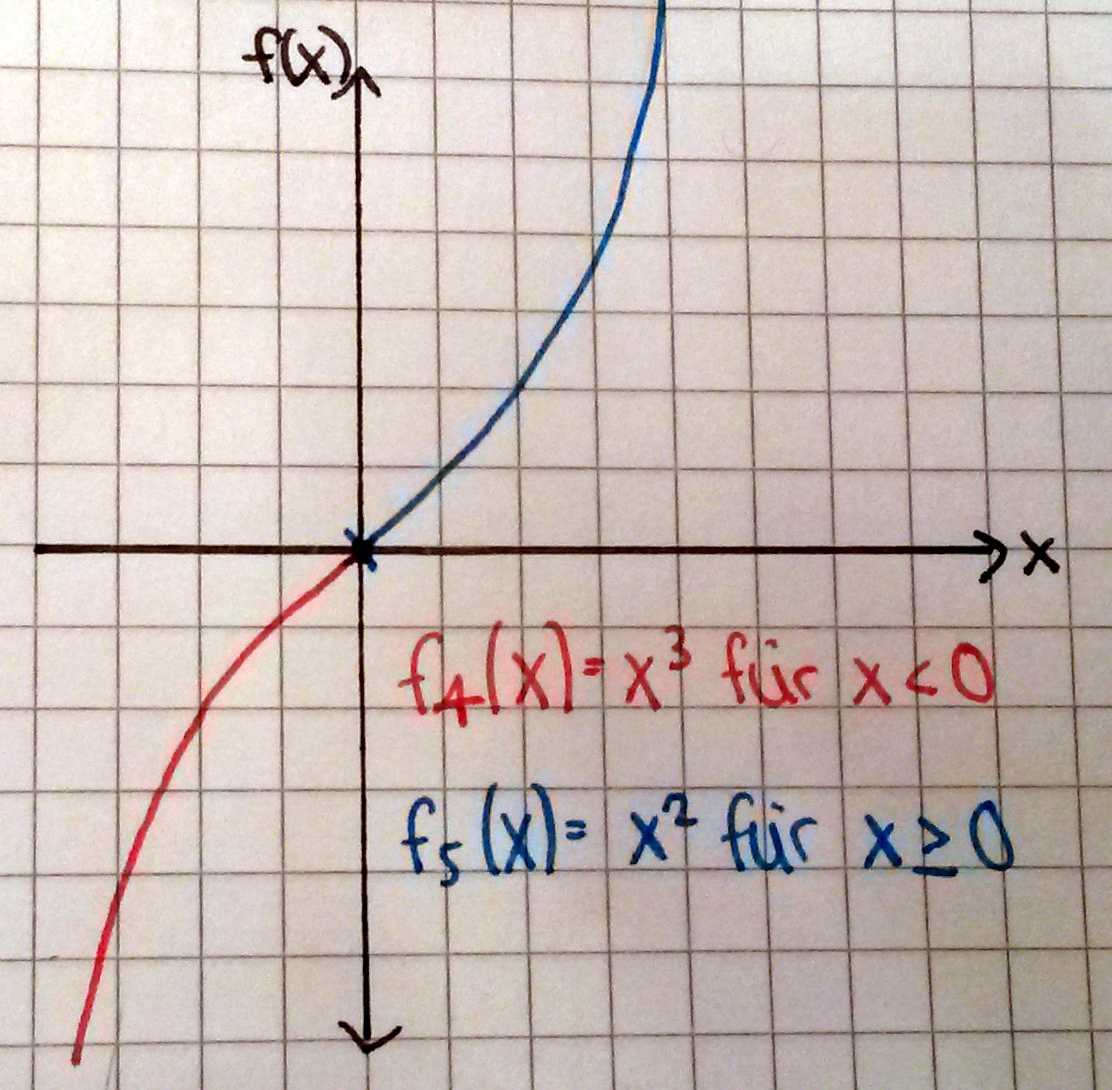 f(x)
x
f₄(x) = x³ für x < 0
f₅(x) = x² für x ≥ 0